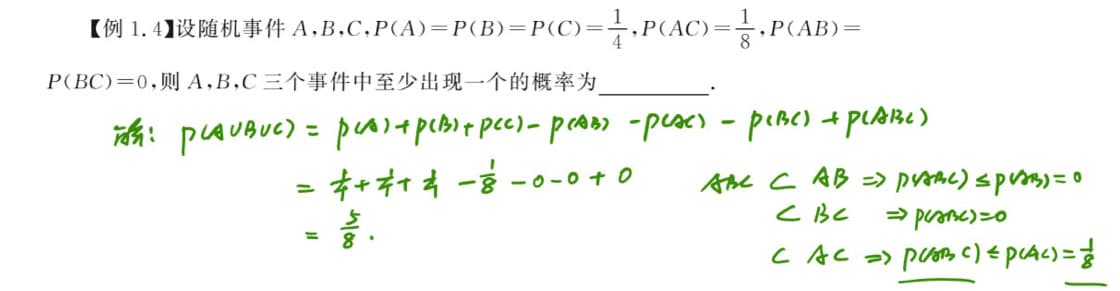 【例 1.4】设随机事件 A,B,C,P(A)=P(B)=P(C)=1/4,P(AC)=1/8,P(AB)=
P(BC)=0,则 A,B,C 三个事件中至少出现一个的概率为________.
解: P(A∪B∪C) = P(A)+P(B)+P(C)-P(AB)-P(AC)-P(BC)+P(ABC)
= 1/4+1/4+1/4-1/8-0-0+0
= 5/8.
ABC ⊂ AB ⇒ P(ABC)≤P(AB)=0
⊂ BC ⇒ P(ABC)=0
⊂ AC ⇒ P(ABC)≤P(AC)=1/8